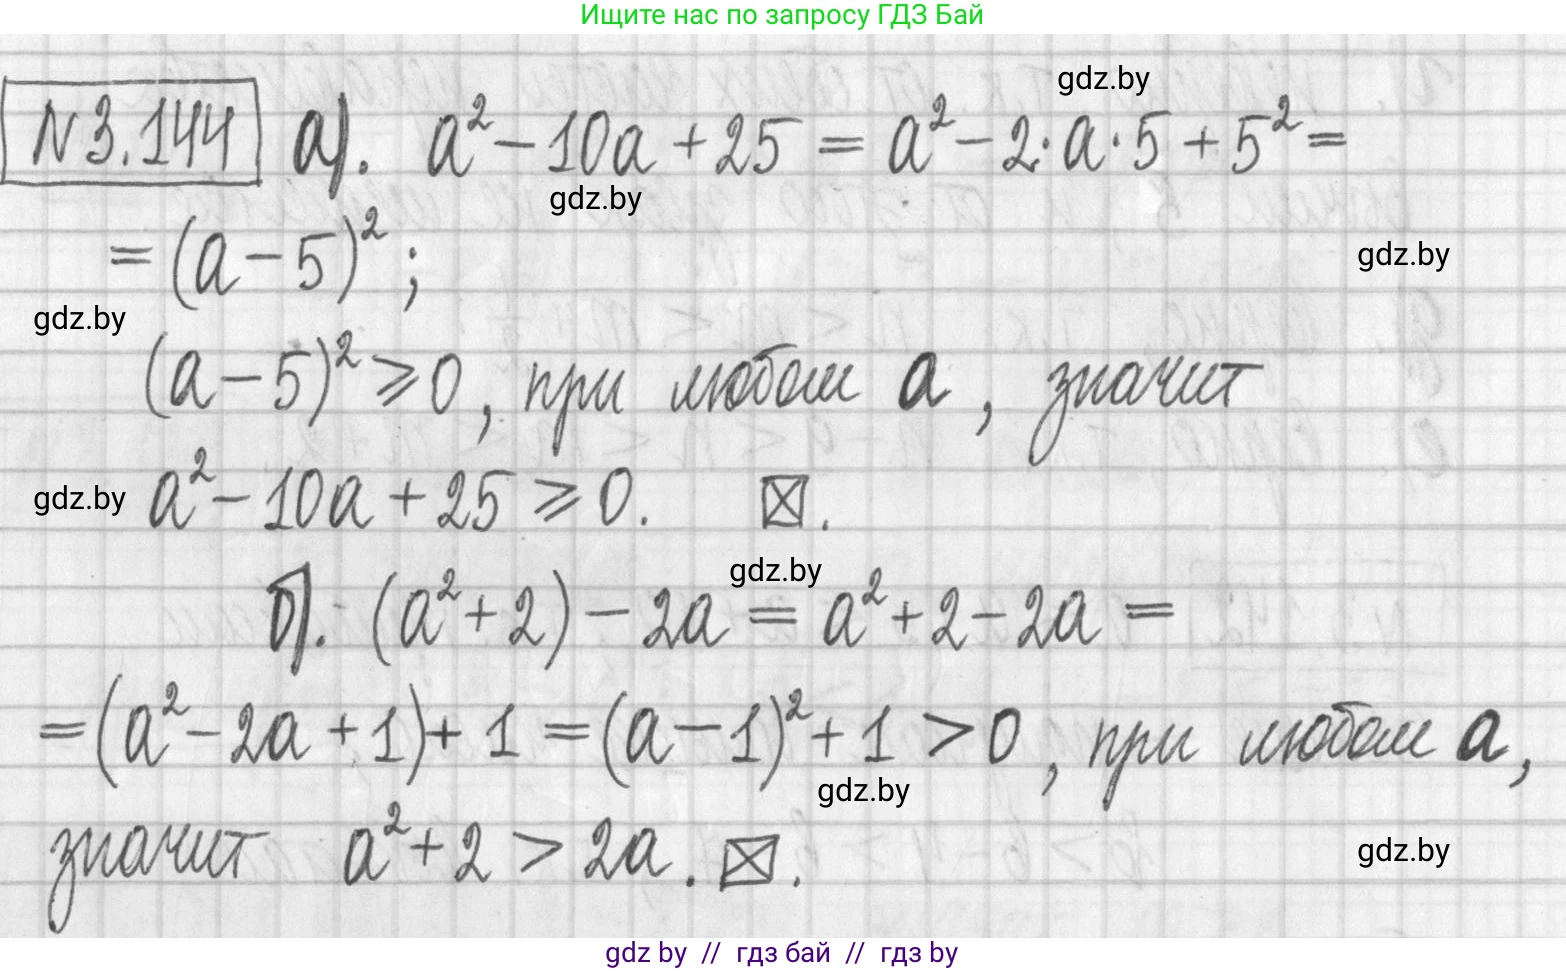 Ищите нас по запросу ГДЗ Бай
gdz.by
N 3.144 а). a² − 10a + 25 = a² − 2·a·5 + 5² =
gdz.by
= (a − 5)² ;
gdz.by
gdz.by
(a − 5)² ⩾ 0, при любом a, значит
gdz.by a² − 10a + 25 ⩾ 0. ⊠.
gdz.by
б). (a² + 2) − 2a = a² + 2 − 2a =
= (a² − 2a + 1) + 1 = (a − 1)² + 1 > 0, при любом a,
gdz.by
значит a² + 2 > 2a. ⊠.
gdz.by
gdz by // гдз бай // гдз by